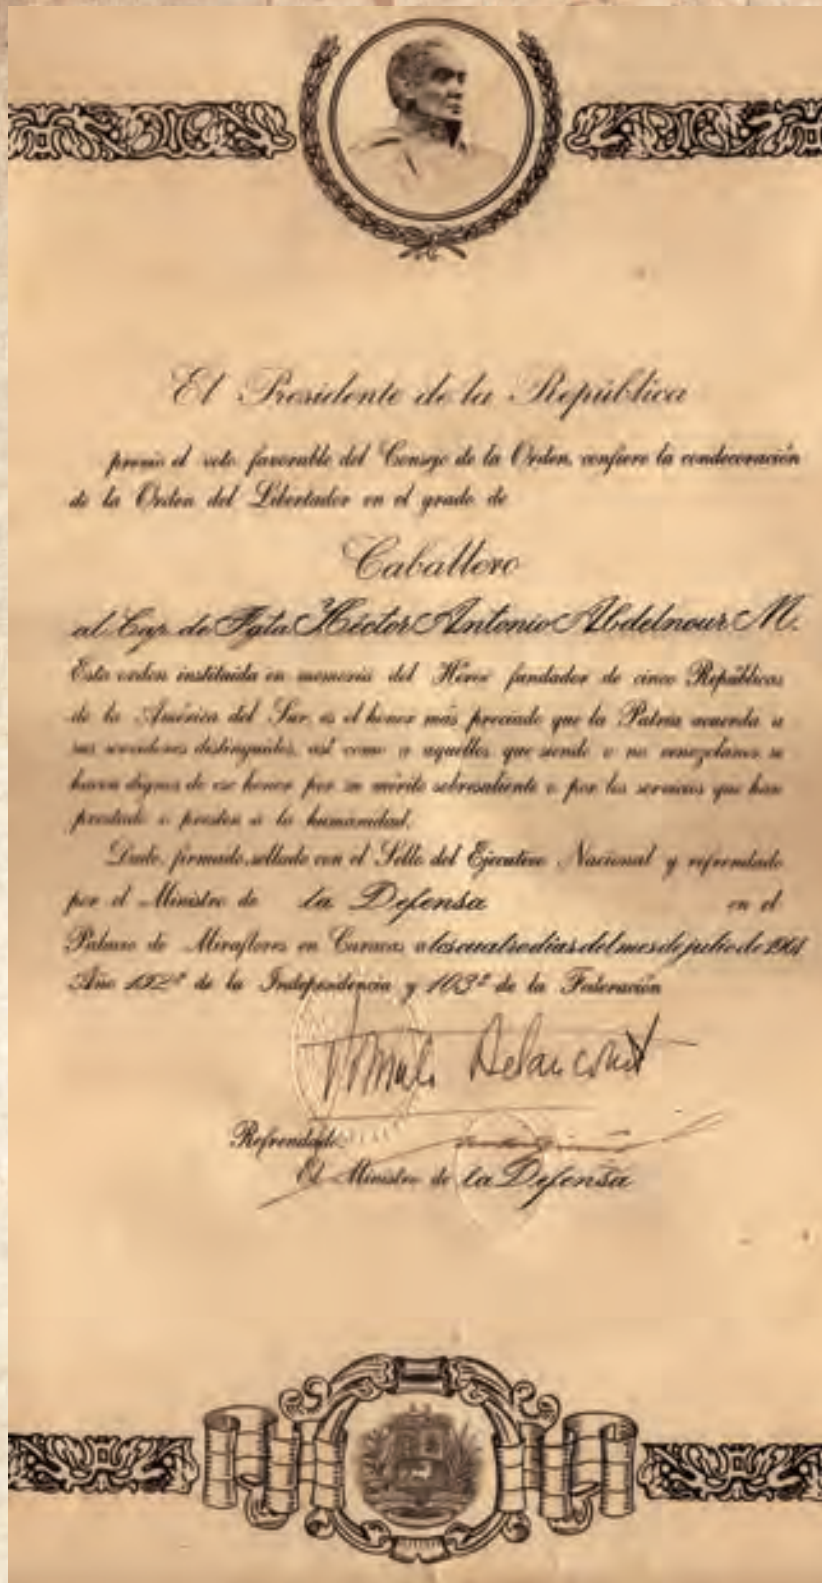 El Presidente de la República
previo el voto favorable del Consejo de la Orden, confiere la condecoración
de la Orden del Libertador en el grado de
Caballero
al Cap. de Fgta Héctor Antonio Abdelnour M.
Esta orden instituída en memoria del Héroe fundador de cinco Repúblicas
de la América del Sur, es el honor más preciado que la Patria acuerda a
sus servidores distinguidos, así como a aquellos que siendo o no venezolanos se
hacen dignos de ese honor por su mérito sobresaliente o por los servicios que han
prestado o presten a la humanidad.
Dado, firmado, sellado con el Sello del Ejecutivo Nacional y refrendado
por el Ministro de la Defensa en el
Palacio de Miraflores en Caracas a los cuatro días del mes de julio de
Año de la Independencia y 103º de la Federación
Rómulo Betancourt
Refrendado:
El Ministro de la Defensa